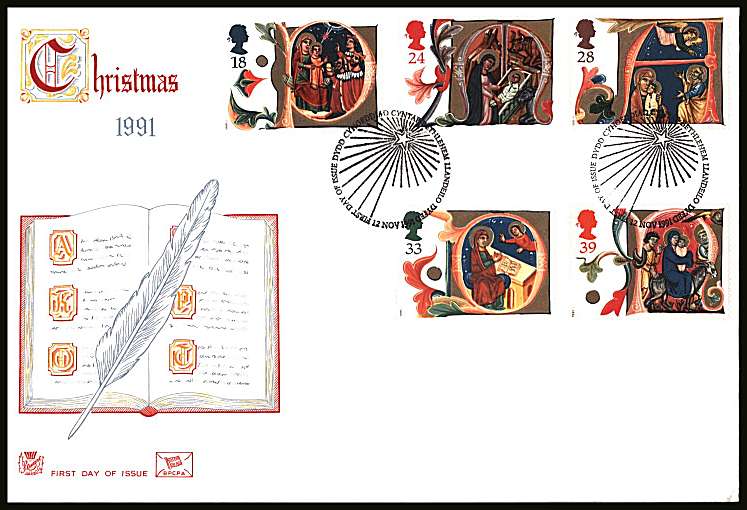 Christmas
1991
18
24
28
33
39
FIRST DAY OF ISSUE DYDD CYHOEDDIAD CYNTAF BETHLEHEM LLANDEILO DYFED 12 NOV 1991
FIRST DAY OF ISSUE DYDD CYHOEDDIAD CYNTAF BETHLEHEM LLANDEILO DYFED 12 NOV 1991
A
P
T
FIRST DAY OF ISSUE
BPCPA